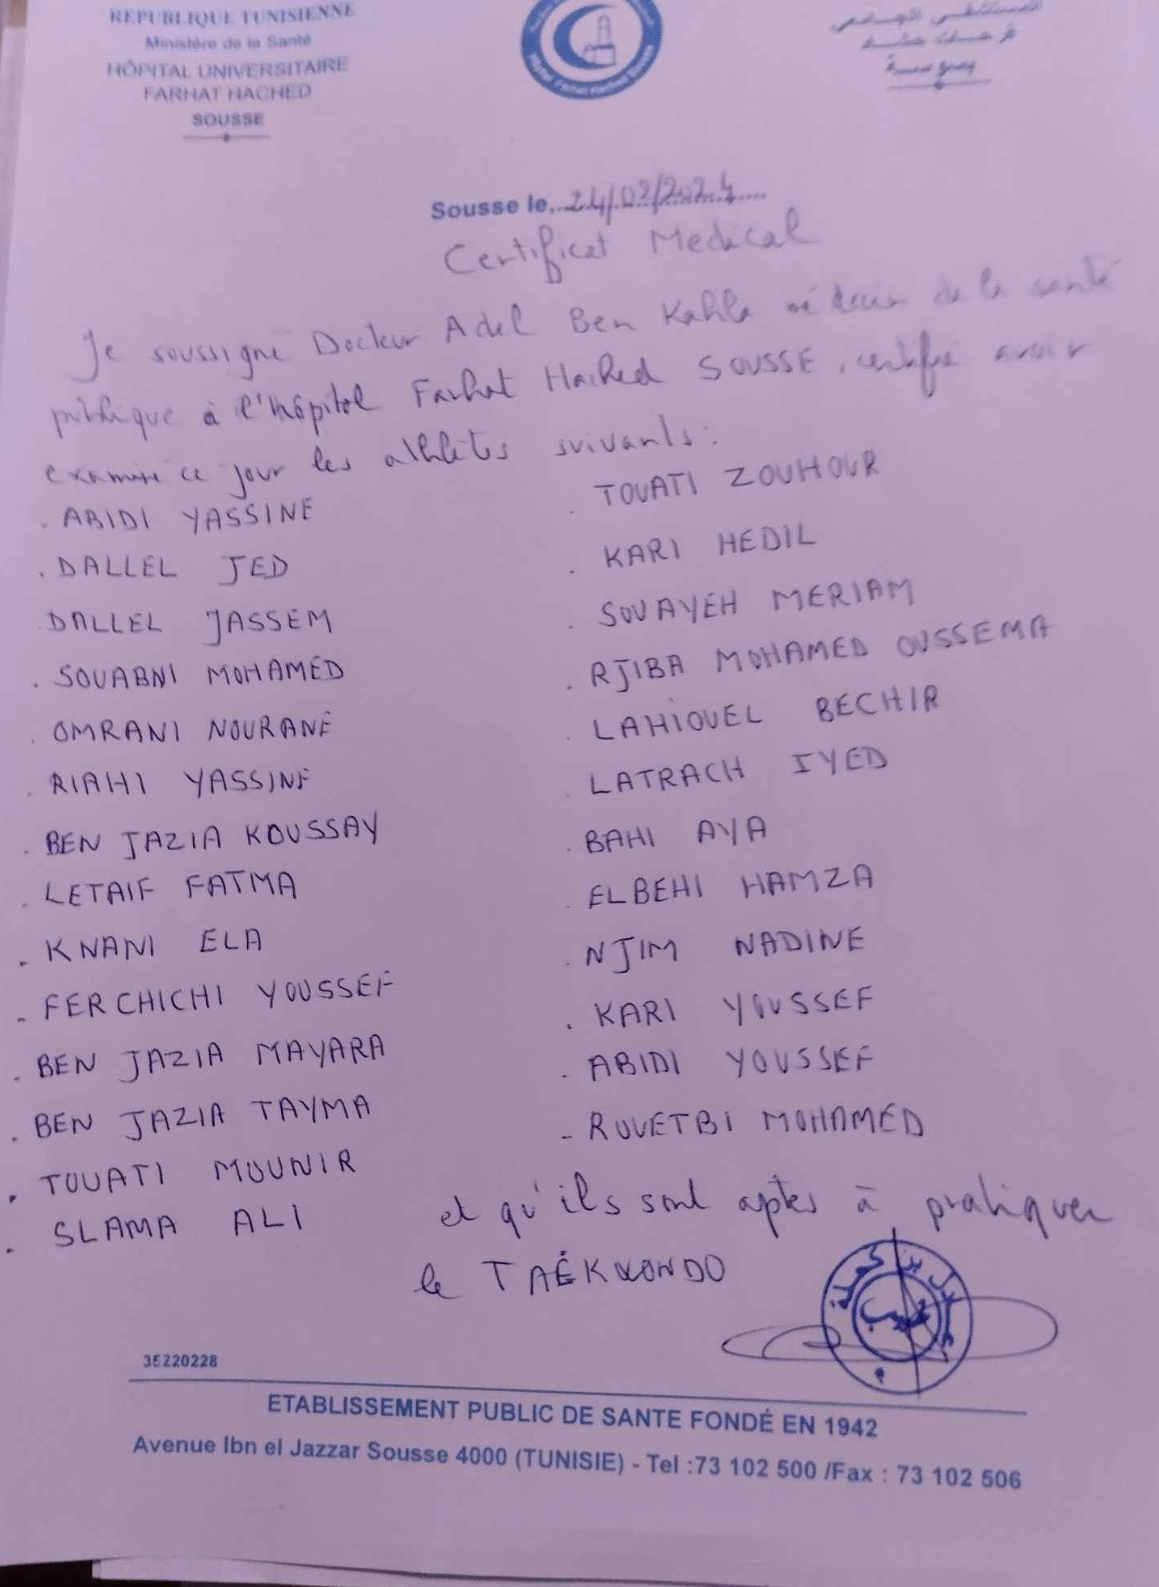 REPUBLIQUE TUNISIENNE
Ministère de la Santé
HÔPITAL UNIVERSITAIRE
FARHAT HACHED
SOUSSE
Sousse le, 24/02/2024
Certificat Medical
Je soussigné Docteur Adel Ben Kahla médecin de la santé
publique à l'hôpital Farhat Hached SOUSSE, certifie avoir
examiné ce jour les athlètes suivants:
. ABIDI YASSINE
. DALLEL JED
DALLEL JASSEM
. SOUABNI MOHAMED
. OMRANI NOURANE
. RIAHI YASSINE
. BEN JAZIA KOUSSAY
. LETAIF FATMA
. KNANI ELA
- FERCHICHI YOUSSEF
. BEN JAZIA MAYARA
. BEN JAZIA TAYMA
. TOUATI MOUNIR
. SLAMA ALI
. TOUATI ZOUHOUR
. KARI HEDIL
. SOUAYEH MERIAM
. RJIBA MOHAMED OUSSEMA
. LAHIOUEL BECHIR
. LATRACH IYED
. BAHI AYA
. ELBEHI HAMZA
. NJIM NADINE
. KARI YOUSSEF
. ABIDI YOUSSEF
- ROUETBI MOHAMED
et qu'ils sont aptes à pratiquer
le TAÉKWONDO
35220228
ETABLISSEMENT PUBLIC DE SANTE FONDÉ EN 1942
Avenue Ibn el Jazzar Sousse 4000 (TUNISIE) - Tel :73 102 500 /Fax : 73 102 506